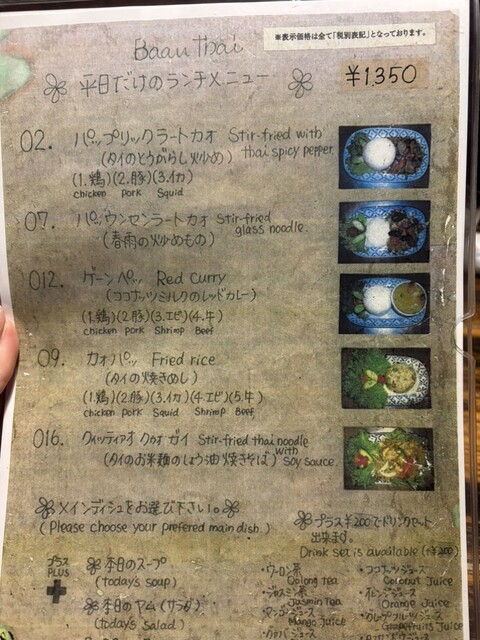 ※表示価格は全て「税別表記」となっております。
Baan Thai
平日だけのランチメニュー
¥1,350
02. パップリックラートカオ Stir-fried with
(タイのとうがらし炒め) thai spicy pepper.
(1.鶏)(2.豚)(3.イカ)
chicken pork Squid
07. パッウンセンラートカオ Stir-fried
(春雨の炒めもの) glass noodle.
012. ゲーンペッ Red Curry
(ココナッツミルクのレッドカレー)
(1.鶏)(2.豚)(3.エビ)(4.牛)
chicken pork Shrimp Beef
09. カオパッ Fried rice
(タイの焼きめし)
(1.鶏)(2.豚)(3.イカ)(4.エビ)(5.牛)
chicken pork Squid Shrimp Beef
016. クィッティアオ クゥォ ガイ Stir-fried thai noodle
(タイのお米麺のしょう油焼きそば) with Soy sauce.
メインディシュをお選び下さい。
(Please choose your prefered main dish.)
プラス¥200でドリンクセット
出来ます。
Drink set is available (+¥200)
プラス
PLUS
本日のスープ
(today's soup)
本日のヤム(サラダ)
(today's Salad)
・ウーロン茶
Oolong tea
・ジャスミン茶
Jasmin tea
・マンゴジュース
Mango Juice
・ココナッツジュース
Coconut Juice
・オレンジジュース
Orange Juice
・グレープフルーツジュース
Grapefruits Juice